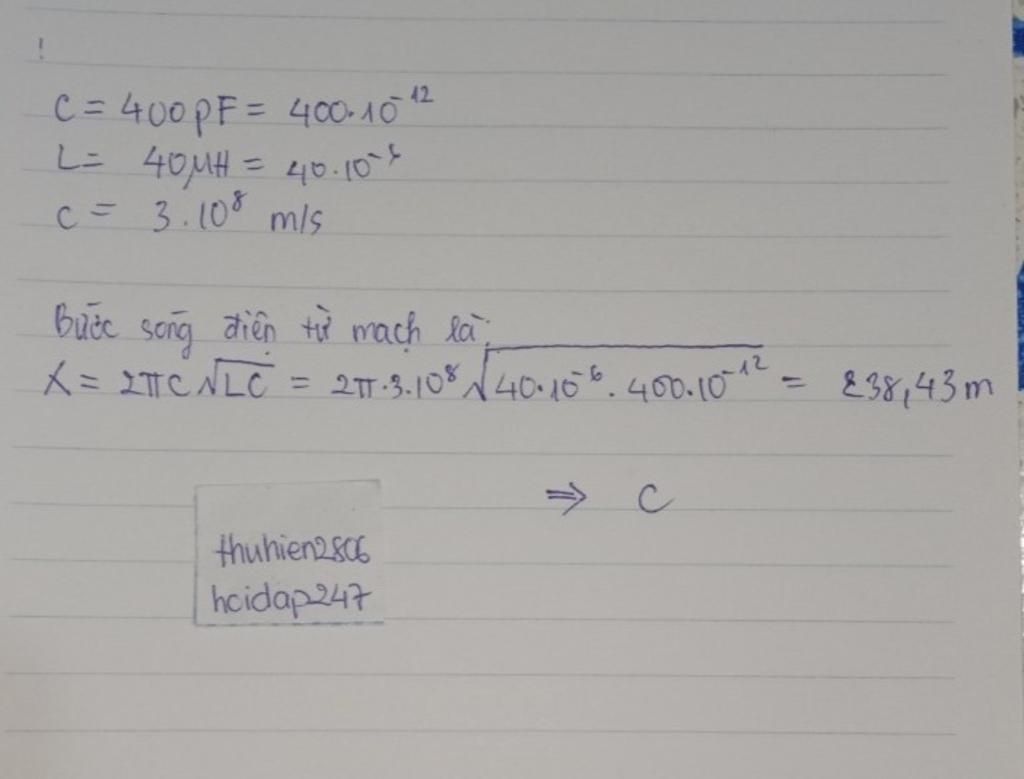 !
C = 400pF = 400.10⁻¹²
L = 40μH = 40.10⁻⁶
c = 3.10⁸ m/s
Bước sóng điện từ mạch là:
λ = 2πc√LC = 2π.3.10⁸√40.10⁻⁶.400.10⁻¹² = 238,43m
⇒ C
thuhien2806
hoidap247